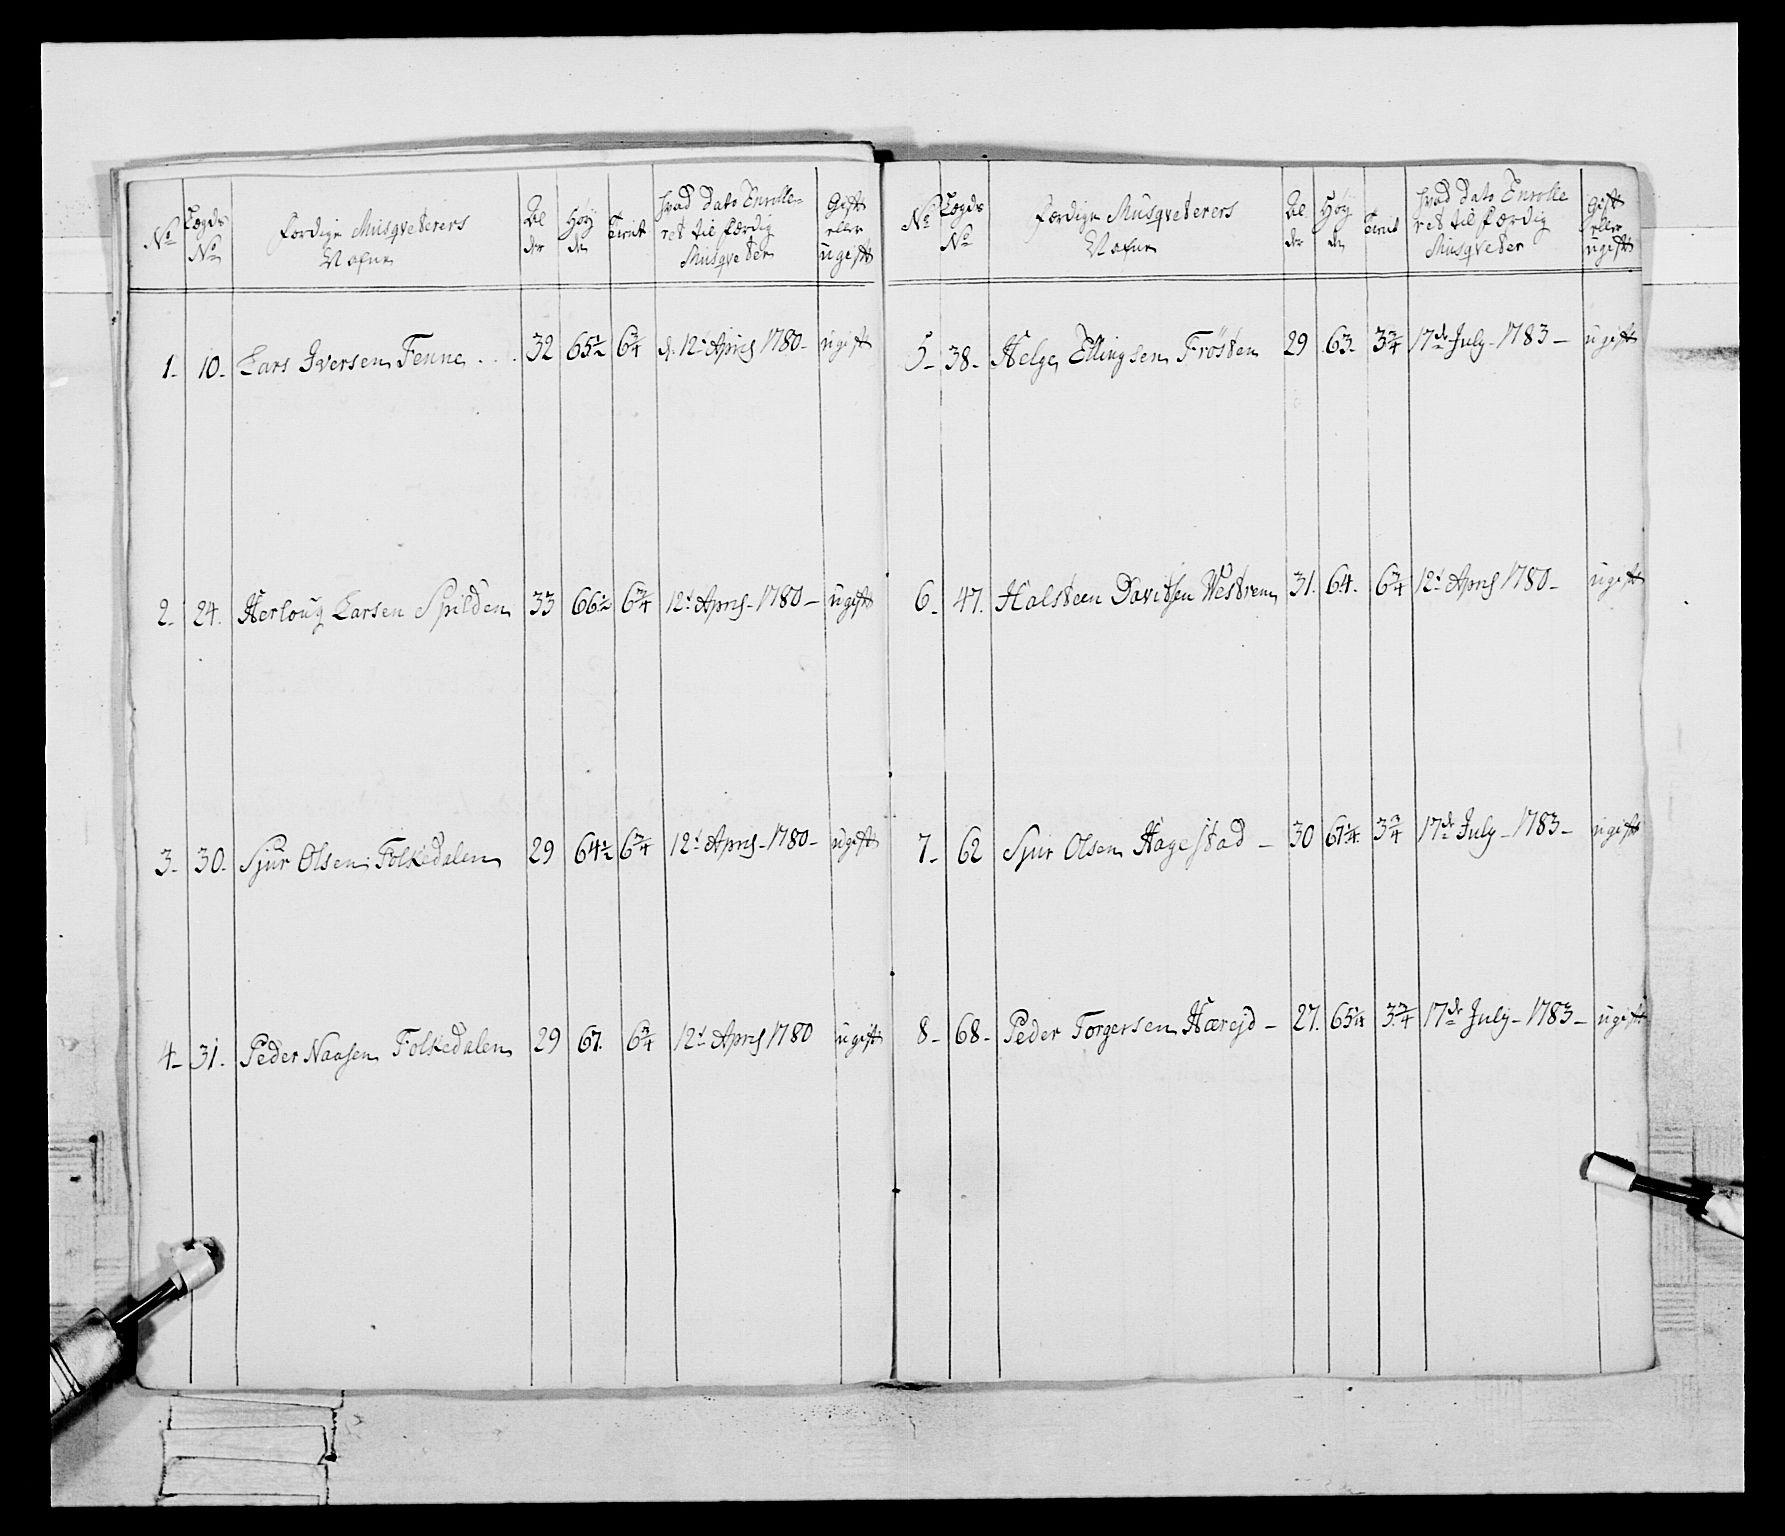 No | Lægds No | Færdige Musqveterers Nafne | Alder | Høyde | Tient | hvad Dato Enrolleret til færdig Musqveter | Gift eller ugift
1. | 10. | Lars Iversen Tenne . . . | 32 | 65½ | 6¾ | d. 12t April 1780 | ugift
2. | 24. | Herloug Larsen Spilden | 33 | 66½ | 6¾ | 12t April 1780 | ugift
3. | 30. | Sjur Olsen Folkedalen | 29 | 64½ | 6¾ | 12t April 1780 | ugift
4. | 31. | Peder Naasen Folkedalen | 29 | 67. | 6¾ | 12t April 1780 | ugift
No | Lægds No | Færdige Musqveterers Nafne | Alder | Høyde | Tient | hvad Dato Enrolleret til færdig Musqveter | Gift eller ugift
5. | 38. | Helge Ellingsen Frøsten | 29 | 63. | 3¾ | 17de July 1783 | ugift
6. | 47. | Halsteen Davitsen Westrem | 31. | 64. | 6¾ | 12t April 1780 | ugift
7. | 62 | Sjur Olsen Hagestad | 30 | 67¼. | 3¾ | 17de July 1783 | ugift
8. | 68. | Peder Torgersen Hærejd | 27. | 65¼ | 3¾ | 17de July 1783 | ugift